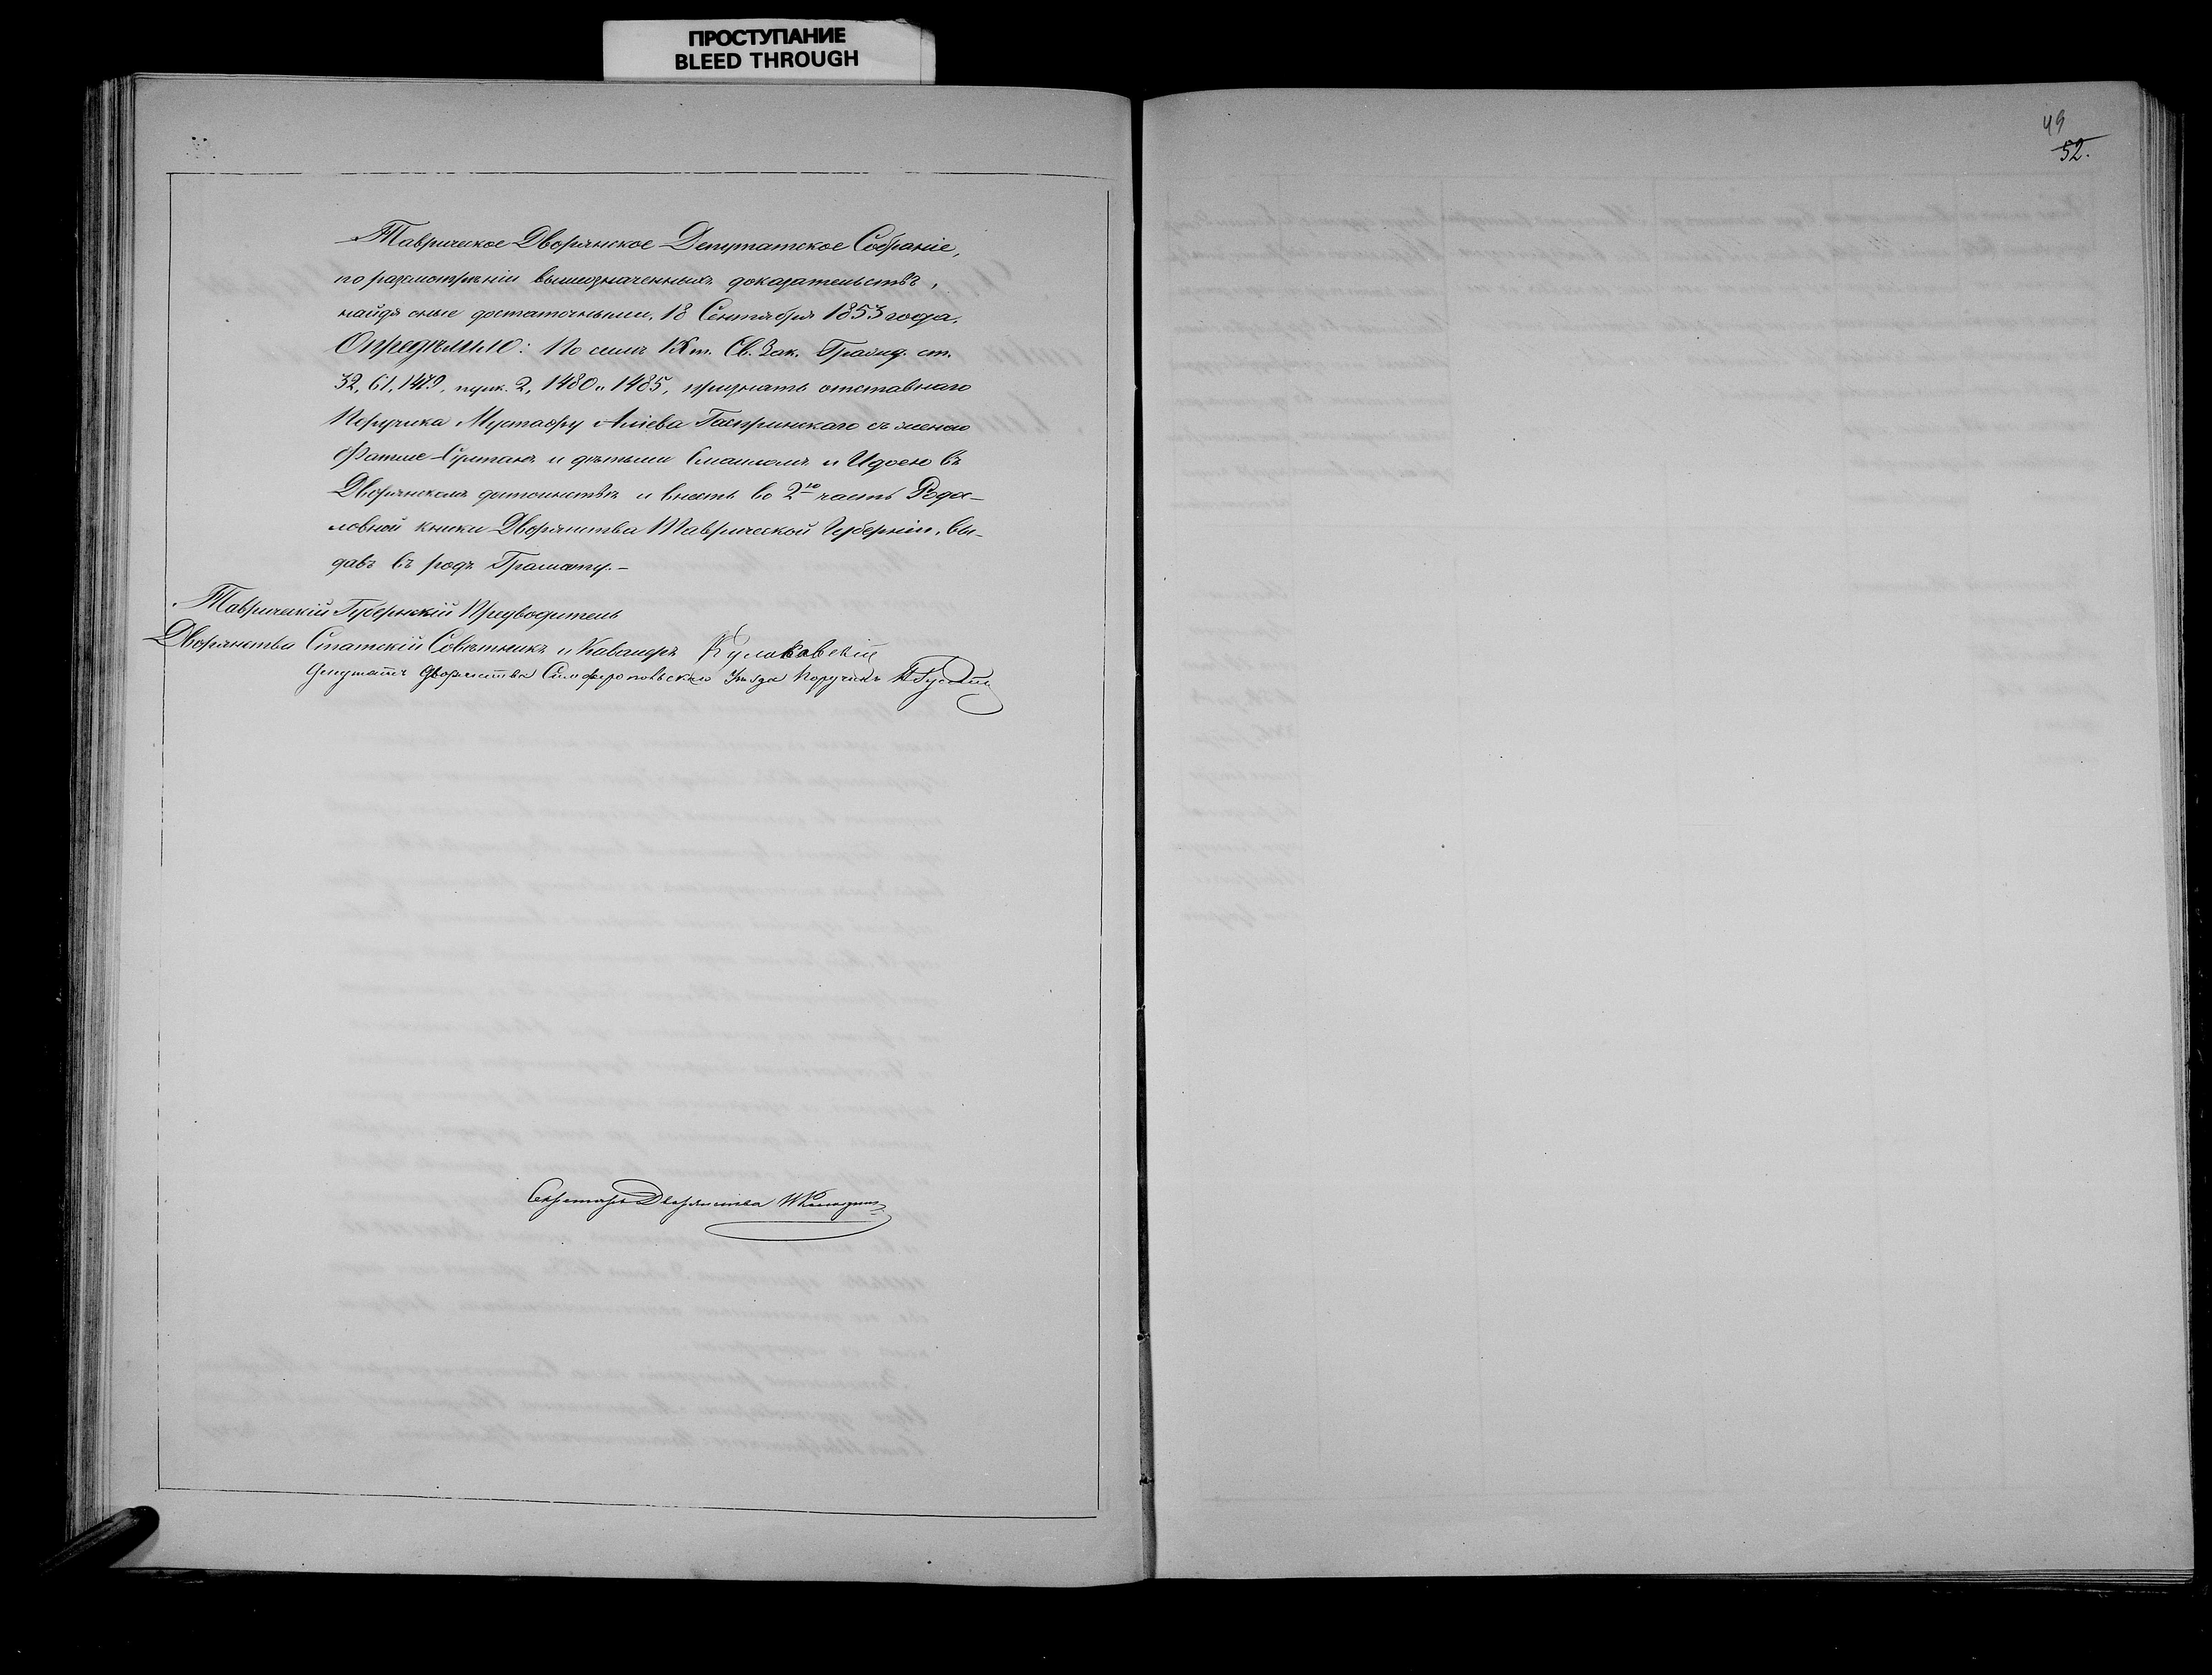 ПРОСТУПАНИЕ
BLEED THROUGH
49
52.
Таврическое Дворянское Депутатское Собраніе,
по разсмотрѣніи вышеозначенныхъ доказательствъ,
найдя оные достаточными, 18 Сентября 1853 года,
Опредѣлило: По силѣ IX т. Св. Зак. Гражд. ст.
32, 61, 1479, пунк. 2, 1480 и 1485, признать отставнаго
Поручика Мустафу Аліева Гаспринскаго съ женою
Фатме-Султанъ и дѣтьми Смаиломъ и Идоею въ
Дворянскомъ достоинствѣ и внесть во 2ю часть Родо-
словной книги Дворянства Таврической Губерніи, вы-
давъ въ родъ Грамату.-
Таврическій Губернскій Предводитель
Дворянства Статскій Совѣтникъ и Кавалеръ
Депутатъ Дворянства Симферопольскаго Уѣзда Поручикъ
Секретарь Дворянства